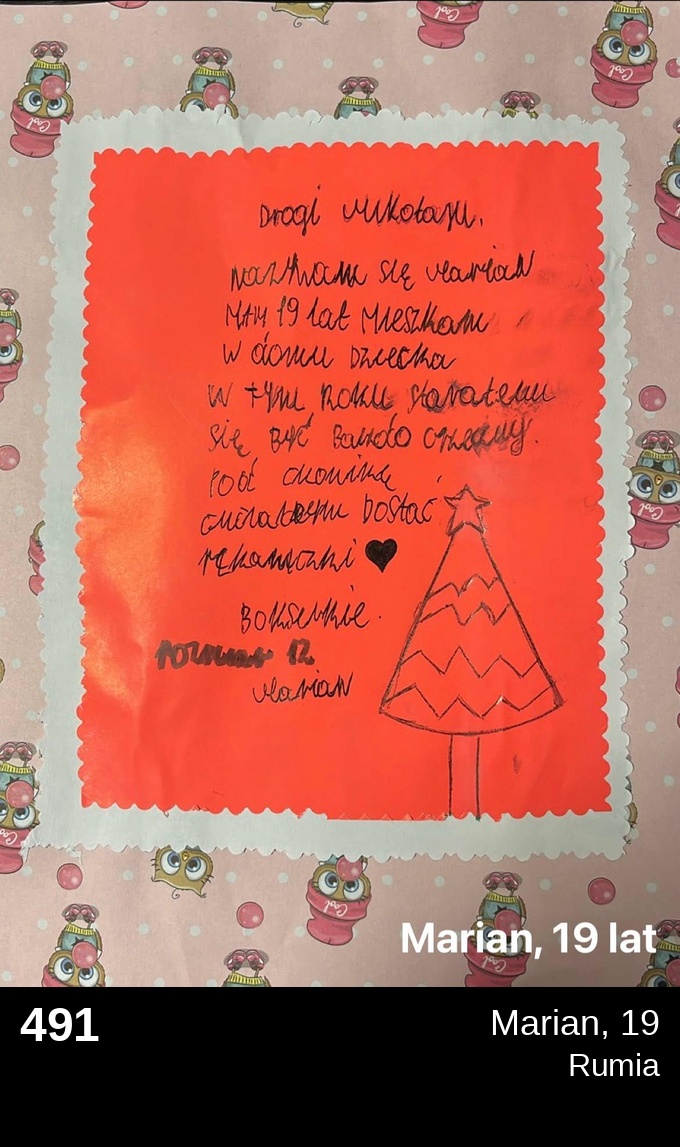 Drogi Mikołaju,
Nazywam się Marian
Mam 19 lat Mieszkam
w domu Dziecka
W tym roku starałem
się być bardzo grzeczny.
Pod choinkę
chciałbym Dostać
rękawiczki
Bokserskie.
12
Marian
Marian, 19 lat
491
Marian, 19
Rumia